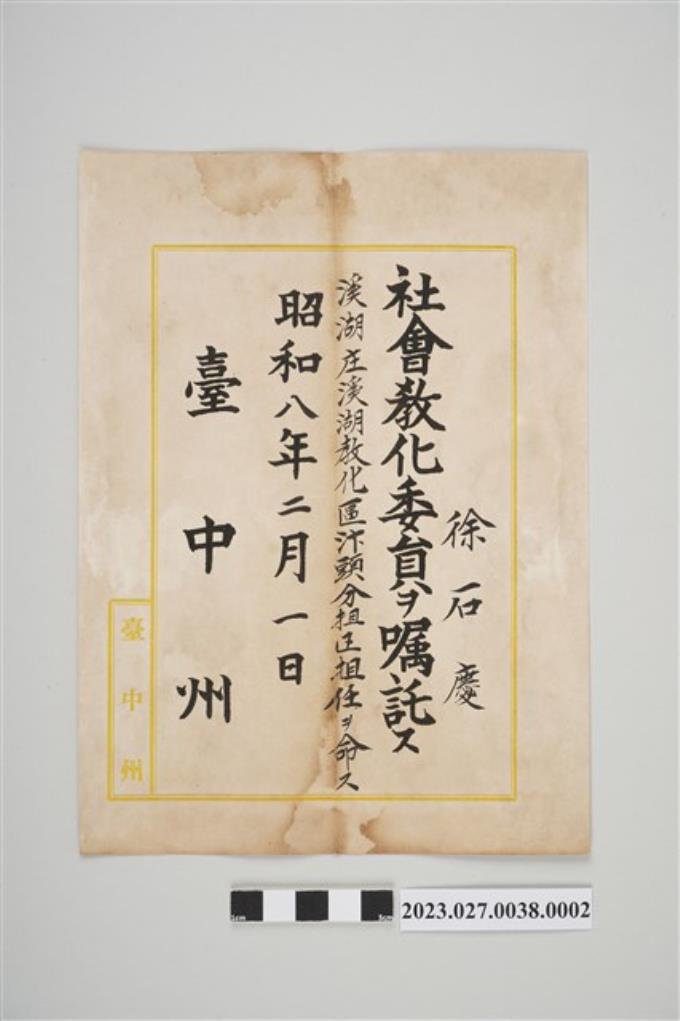 徐石慶
社會教化委員ヲ嘱託ス
溪湖庄溪湖教化區汴頭分担正担任ヲ命ス
昭和八年二月一日
臺中州
臺中州
1cm 5cm
2023.027.0038.0002